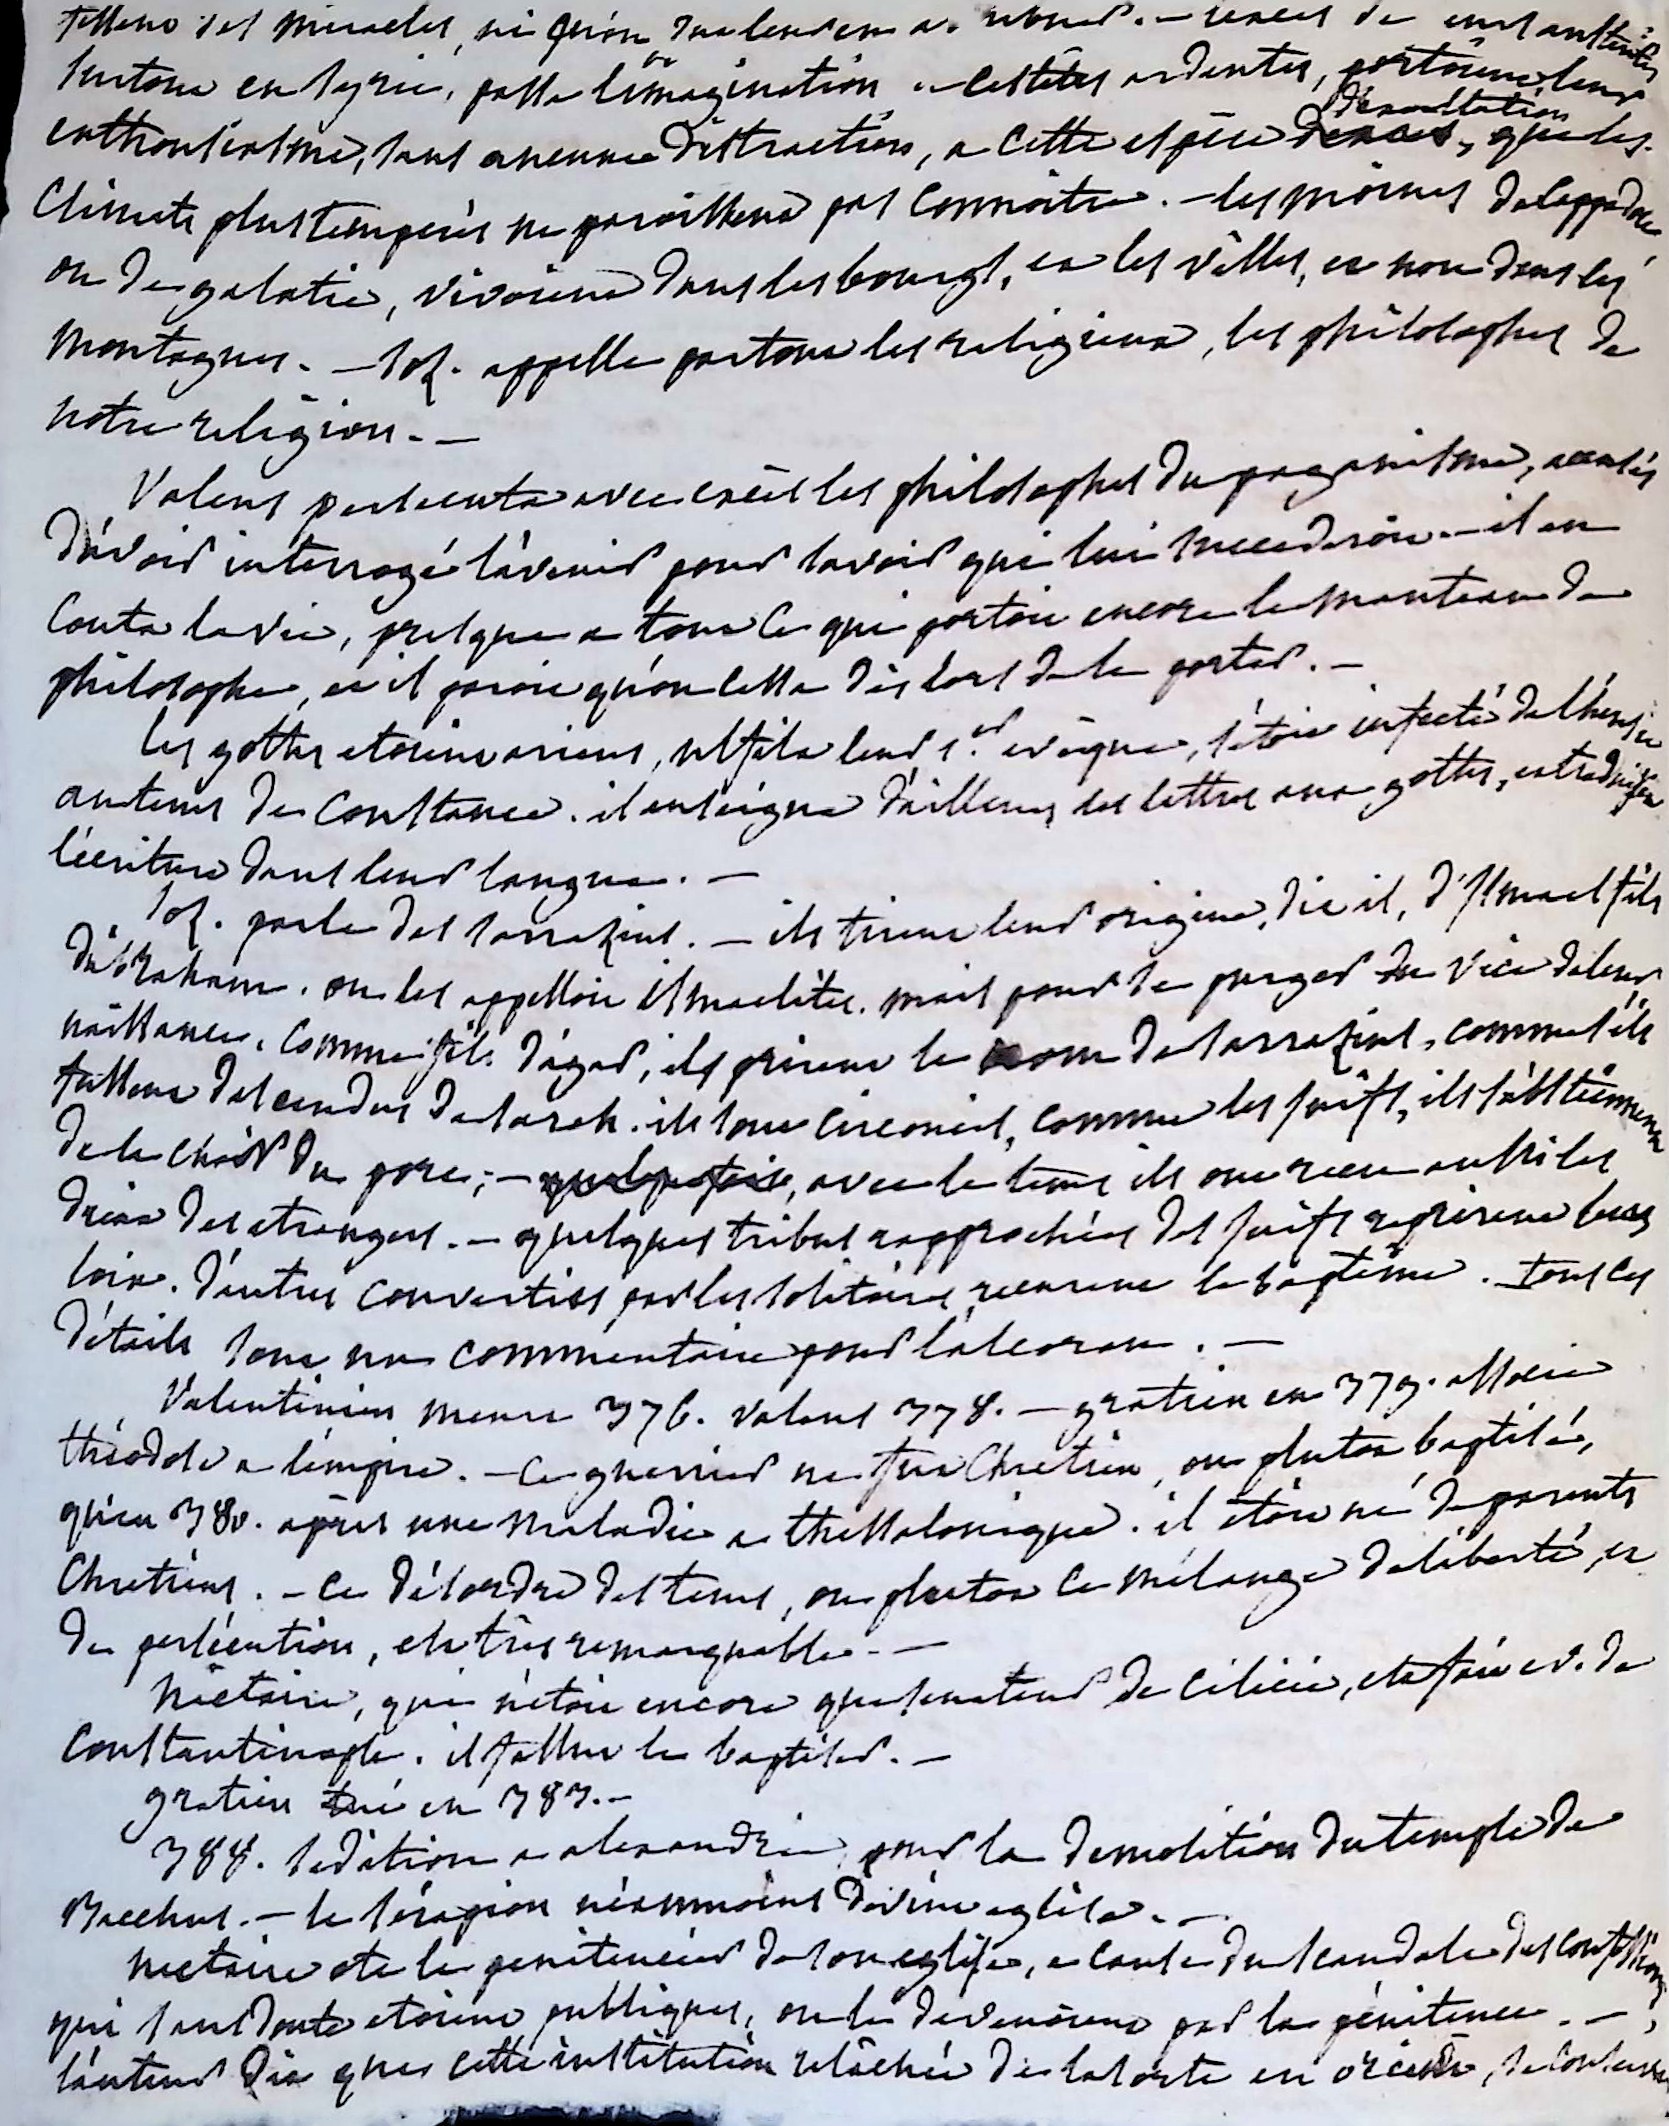 fissent des miracles, ni qu'on de austérités
surtout en Syrie, passe l'imagination. – ces têtes ardentes, portoient leur
enthousiasme, sans aucune distraction, a cette espèce d'exaltation, que les
climats plus tempérés ne paroissent pas connoitre. – les moines de Cappadoce
ou de galatie, vivoient dans les bourgs, et les villes, et non dans les
montagnes. – Soz. appelle partout les religieux, les philosophes de
notre religion. –
Valens persecuta avec excès les philosophes du paganisme, accusés
d'avoir interrogé l'avenir pour savoir qui lui succederoit. – il en
couta la vie, presque a tout ce qui portoit encore le manteau de
philosophe, et il paroit qu'on cessa dès lors de le porter. –
les goths etoient ariens, ulfila leur 1.er evêque, s'étoit infecté de l'heresie
au tems de Constance. il enseigna d'ailleurs les lettres aux goths, et traduisit
l'écriture dans leur langue. –
Soz. parle des sarrazins. – ils tirent leur origine, dit il, d'Ismael fils
d'abraham. on les appelloit ismaelites. mais pour se purger du vice de leur
naissance, comme fils d'agar, ils prirent le nom de sarrazins, comme s'ils
fussent descendus de sarah. ils sont circoncis, comme les juifs, ils s'abstiennent
de la chair du porc; – quelquefois, avec le tems ils ont recu aussi les
dieux des etrangers. – quelques tribus rapprochées des juifs reprirent leurs
loix. d'autres converties par les solitaires, recurent le baptême. tous ces
détails sont un commentaire pour l'alcoran. –
Valentinien meurt 376. Valens 378. – gratien en 379. associe
théodose a l'empire. – ce guerrier ne fut chretien, ou plutot baptisé,
qu'en 380. après une maladie a thessalonique. il étoit né de parents
chretiens. – ce désordre des tems, ou plutot ce mélange de liberté, et
de persécution, est très remarquable. –
Nectaire, qui n'etoit encore que senateur de Cilicie, est fait ev. de
Constantinople. il fallut le baptiser. –
gratien tué en 383. –
388. sedition a alexandrie, pour la demolition du temple de
Bacchus. – le sérapion néanmoins devint eglise. –
Nectaire ote le penitencier de son eglise, a cause du scandale des confessions
qui sans doute etoient publiques, ou le devenoient par la pénitence. –
l'auteur dit que cette institution relachée de la sorte en orient, se conserva